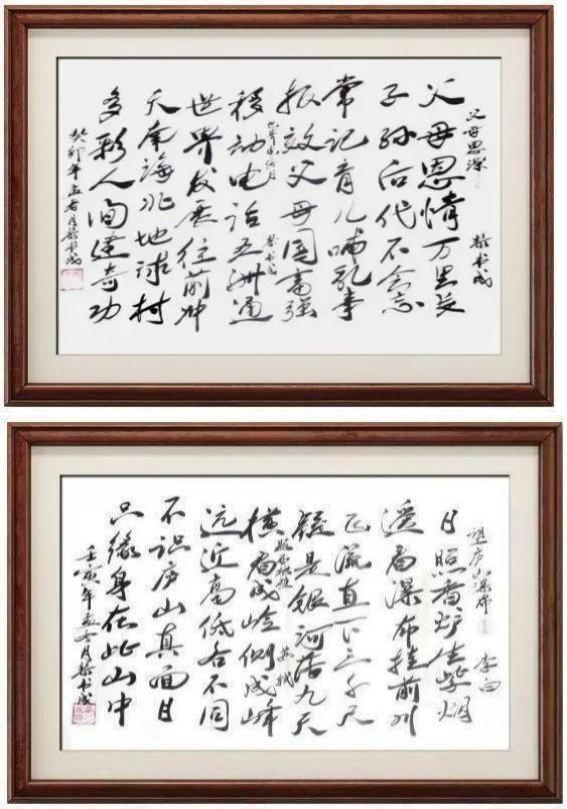 父母恩深 书成
父母恩情万里长
子孙后代不会忘
常记育儿哺乳事
报效父母国富强
书成
移动电话五洲通
世界发展往前冲
天南海北地球村
多彩人间建奇功
癸卯年 月 书成
望庐山瀑布 李白
日照香炉生紫烟
遥看瀑布挂前川
飞流直下三千尺
疑是银河落九天
苏轼
横看成岭侧成峰
远近高低各不同
不识庐山真面目
只缘身在此山中
壬寅年 月 书成